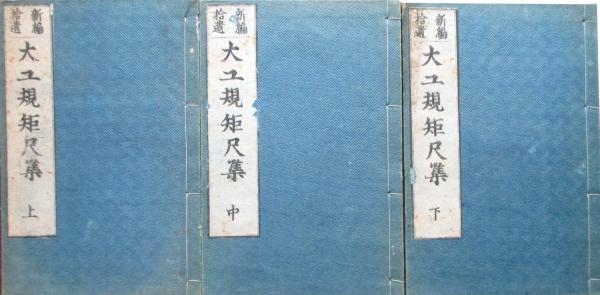 新編
拾遺
大工規矩尺集
上
新編
拾遺
大工規矩尺集
中
新編
拾遺
大工規矩尺集
下